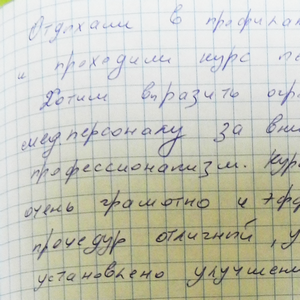 Отдыхали в профилак
и проходили курс ле
Хотим выразить огр
мед.персоналу за вни
профессионализм. Кур
очень грамотно и эфф
процедур отличный, у
установлено улучшени